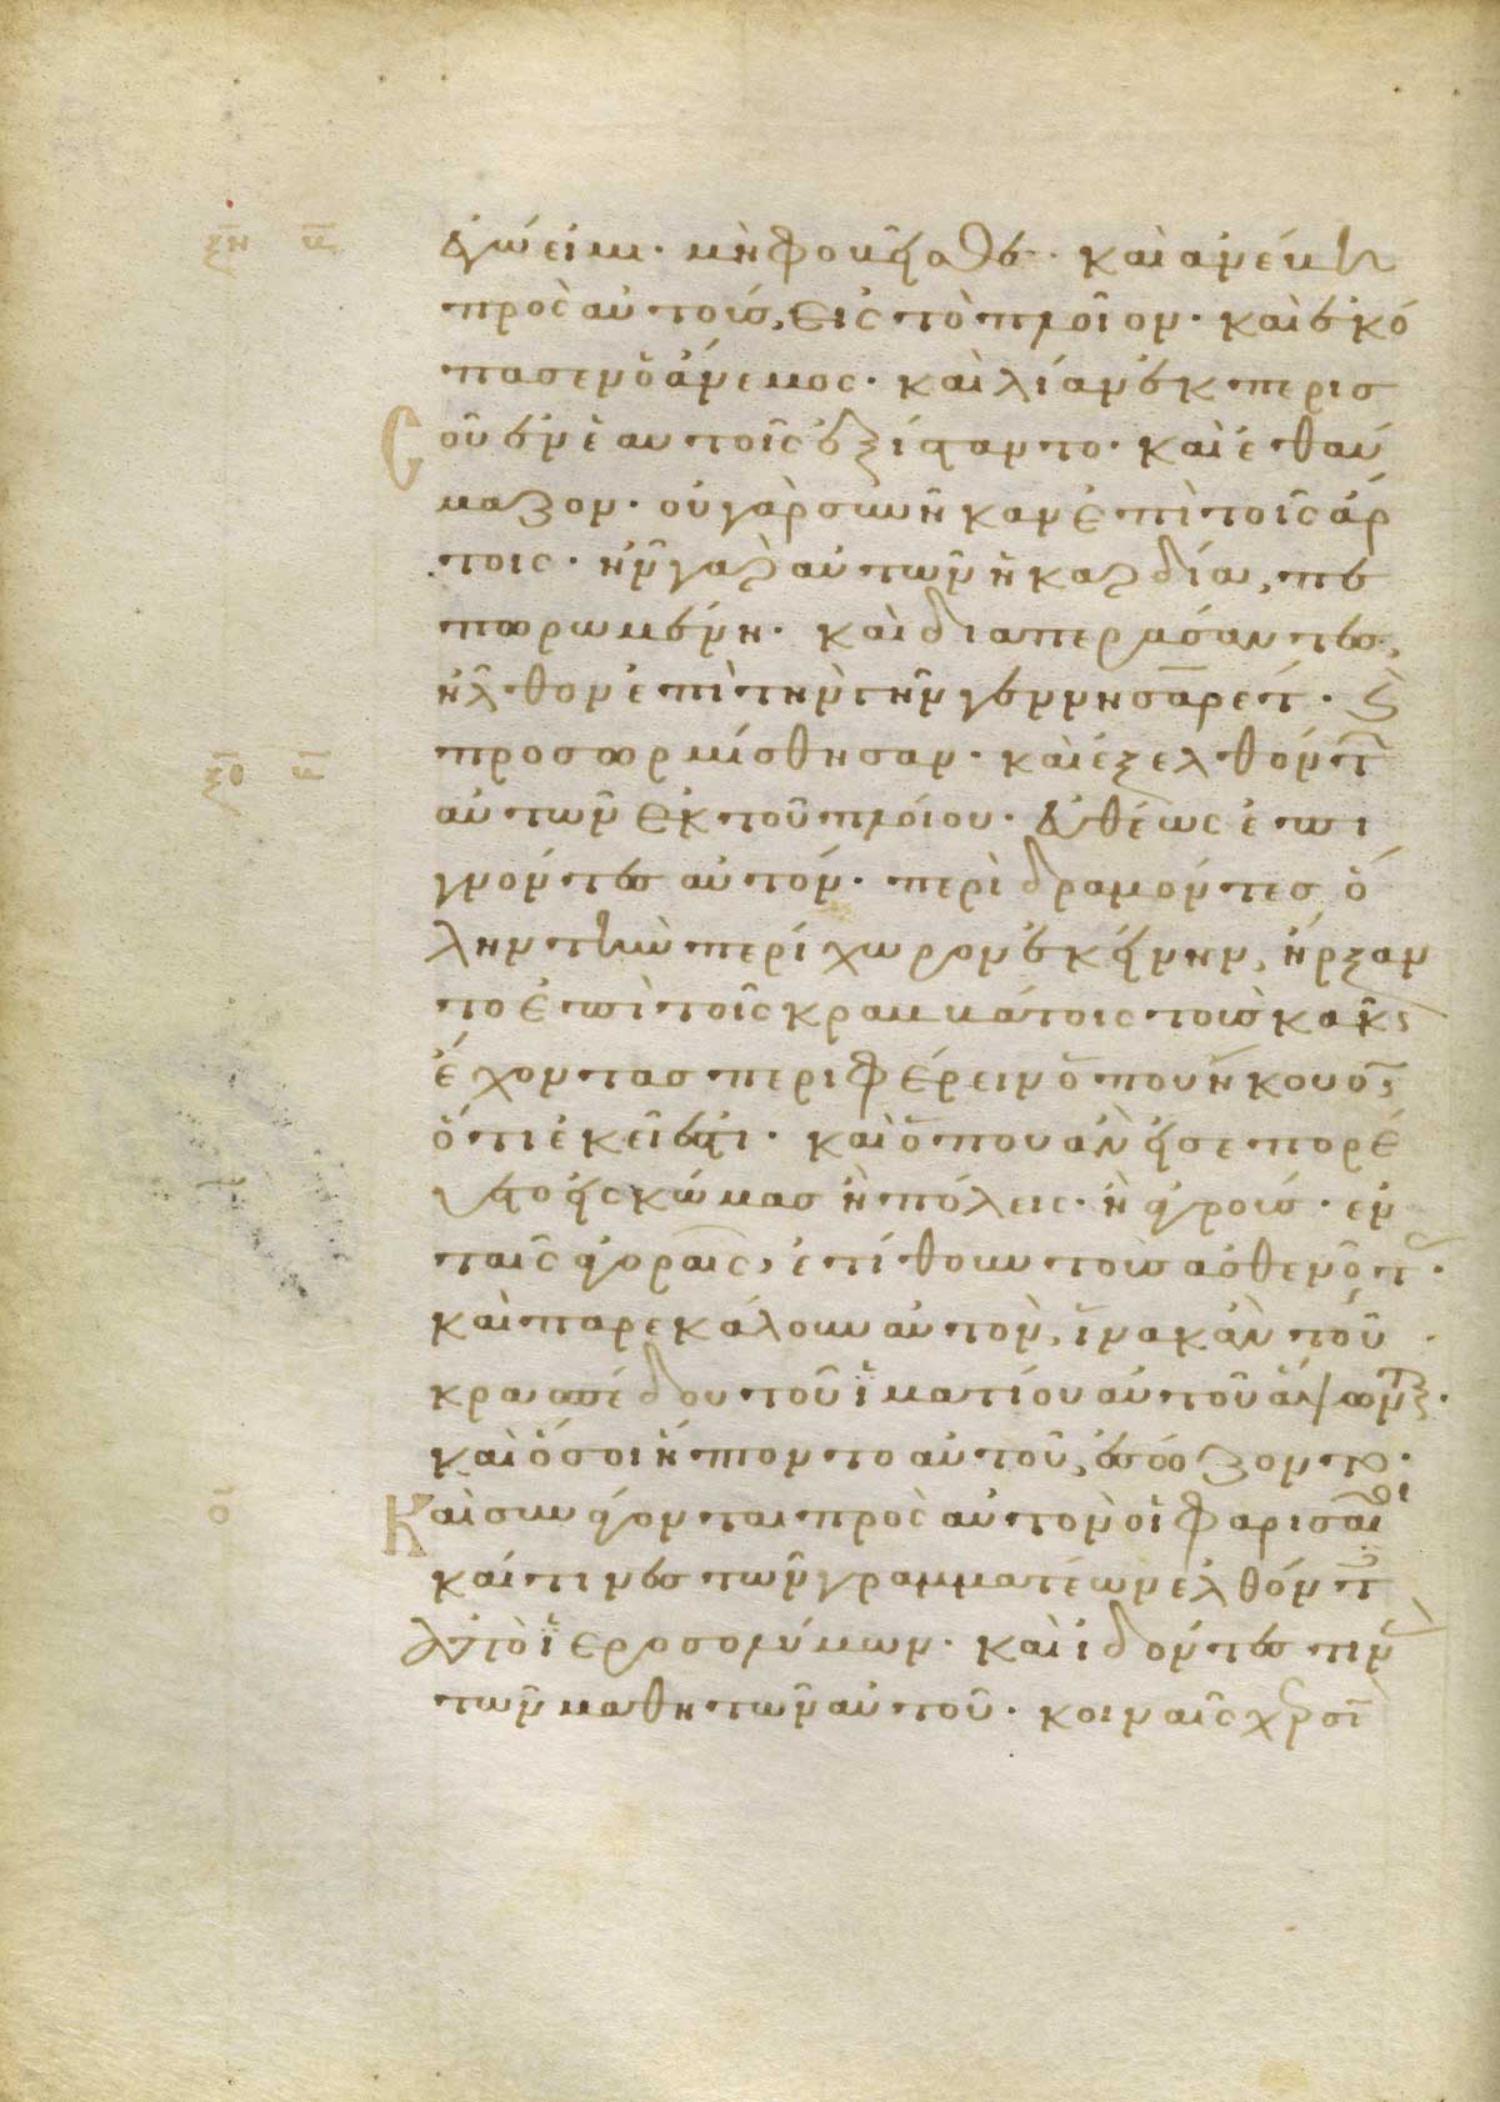 ἐγώ εἰμι· μὴ φοβεῖσθε· καὶ ἀνέβη
πρὸς αὐτοὺς, εἰς τὸ πλοῖον· καὶ ἐκό
πασεν ὁ ἄνεμος· καὶ λίαν ἐκ περισ
οῦ ἐν ἑαυτοῖς ἐξίσταντο· καὶ ἐθαύ
μαζον· οὐ γὰρ συνῆκαν ἐπὶ τοῖς ἄρ
τοις· ἦν γὰρ αὐτῶν ἡ καρδία, πε
πωρωμένη· καὶ διαπεράσαντες,
ἦλθον ἐπὶ τὴν γῆν γεννησαρέτ· κ(αὶ)
προσωρμίσθησαν· καὶ ἐξελθόντ(ων)
αὐτῶν ἐκ τοῦ πλοίου· εὐθέως ἐπι
γνόντες αὐτόν· περιδραμόντες ὅ
λην τὴν περίχωρον ἐκείνην, ἤρξαν
το ἐπὶ τοῖς κραββάτοις τοὺς κακῶς
ἔχοντας περιφέρειν ὅπου ἤκουον
ὅτι ἐκεῖ ἐστι· καὶ ὅπου ἂν εἰσεπορεύ
ετο εἰς κώμας ἢ πόλεις· ἢ ἀγροὺς· ἐν
ταῖς ἀγοραῖς, ἐτίθουν τοὺς ἀσθενοῦντ(ας)·
καὶ παρεκάλουν αὐτὸν, ἵνα κἂν τοῦ
κρασπέδου τοῦ ἱματίου αὐτοῦ ἅψωντ(αι)·
καὶ ὅσοι ἥπτοντο αὐτοῦ, ἐσώζοντο·
Καὶ συνάγονται πρὸς αὐτὸν οἱ φαρισαῖοι
καί τινες τῶν γραμματέων ἐλθόντ(ες)
ἀπὸ ἱεροσολύμων· καὶ ἰδόντες τιν(ὰς)
τῶν μαθητῶν αὐτοῦ· κοιναῖς χερσὶ
ξη
ξθ
ο